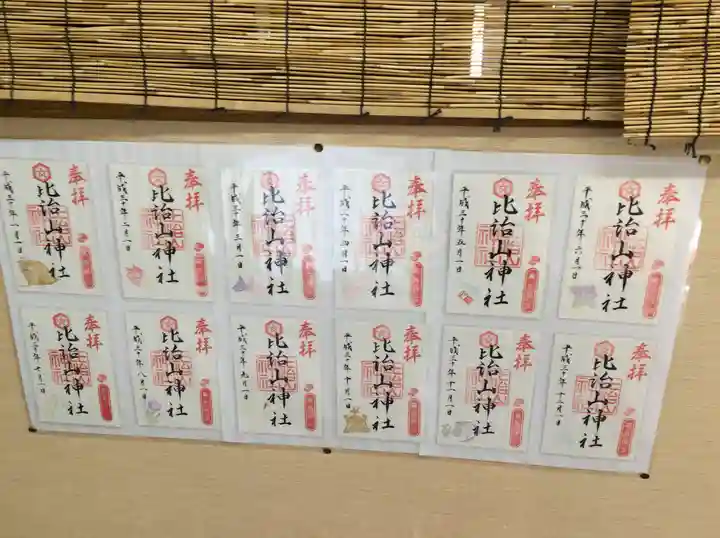 奉拝
比治山神社
平成三十年一月一日
奉拝
比治山神社
平成三十年二月一日
奉拝
比治山神社
平成三十年三月一日
奉拝
比治山神社
平成三十年四月一日
奉拝
比治山神社
平成三十年五月一日
奉拝
比治山神社
平成三十年六月一日
奉拝
比治山神社
平成三十年七月一日
奉拝
比治山神社
平成三十年八月一日
奉拝
比治山神社
平成三十年九月一日
奉拝
比治山神社
平成三十年十月一日
奉拝
比治山神社
平成三十年十一月一日
奉拝
比治山神社
平成三十年十二月一日